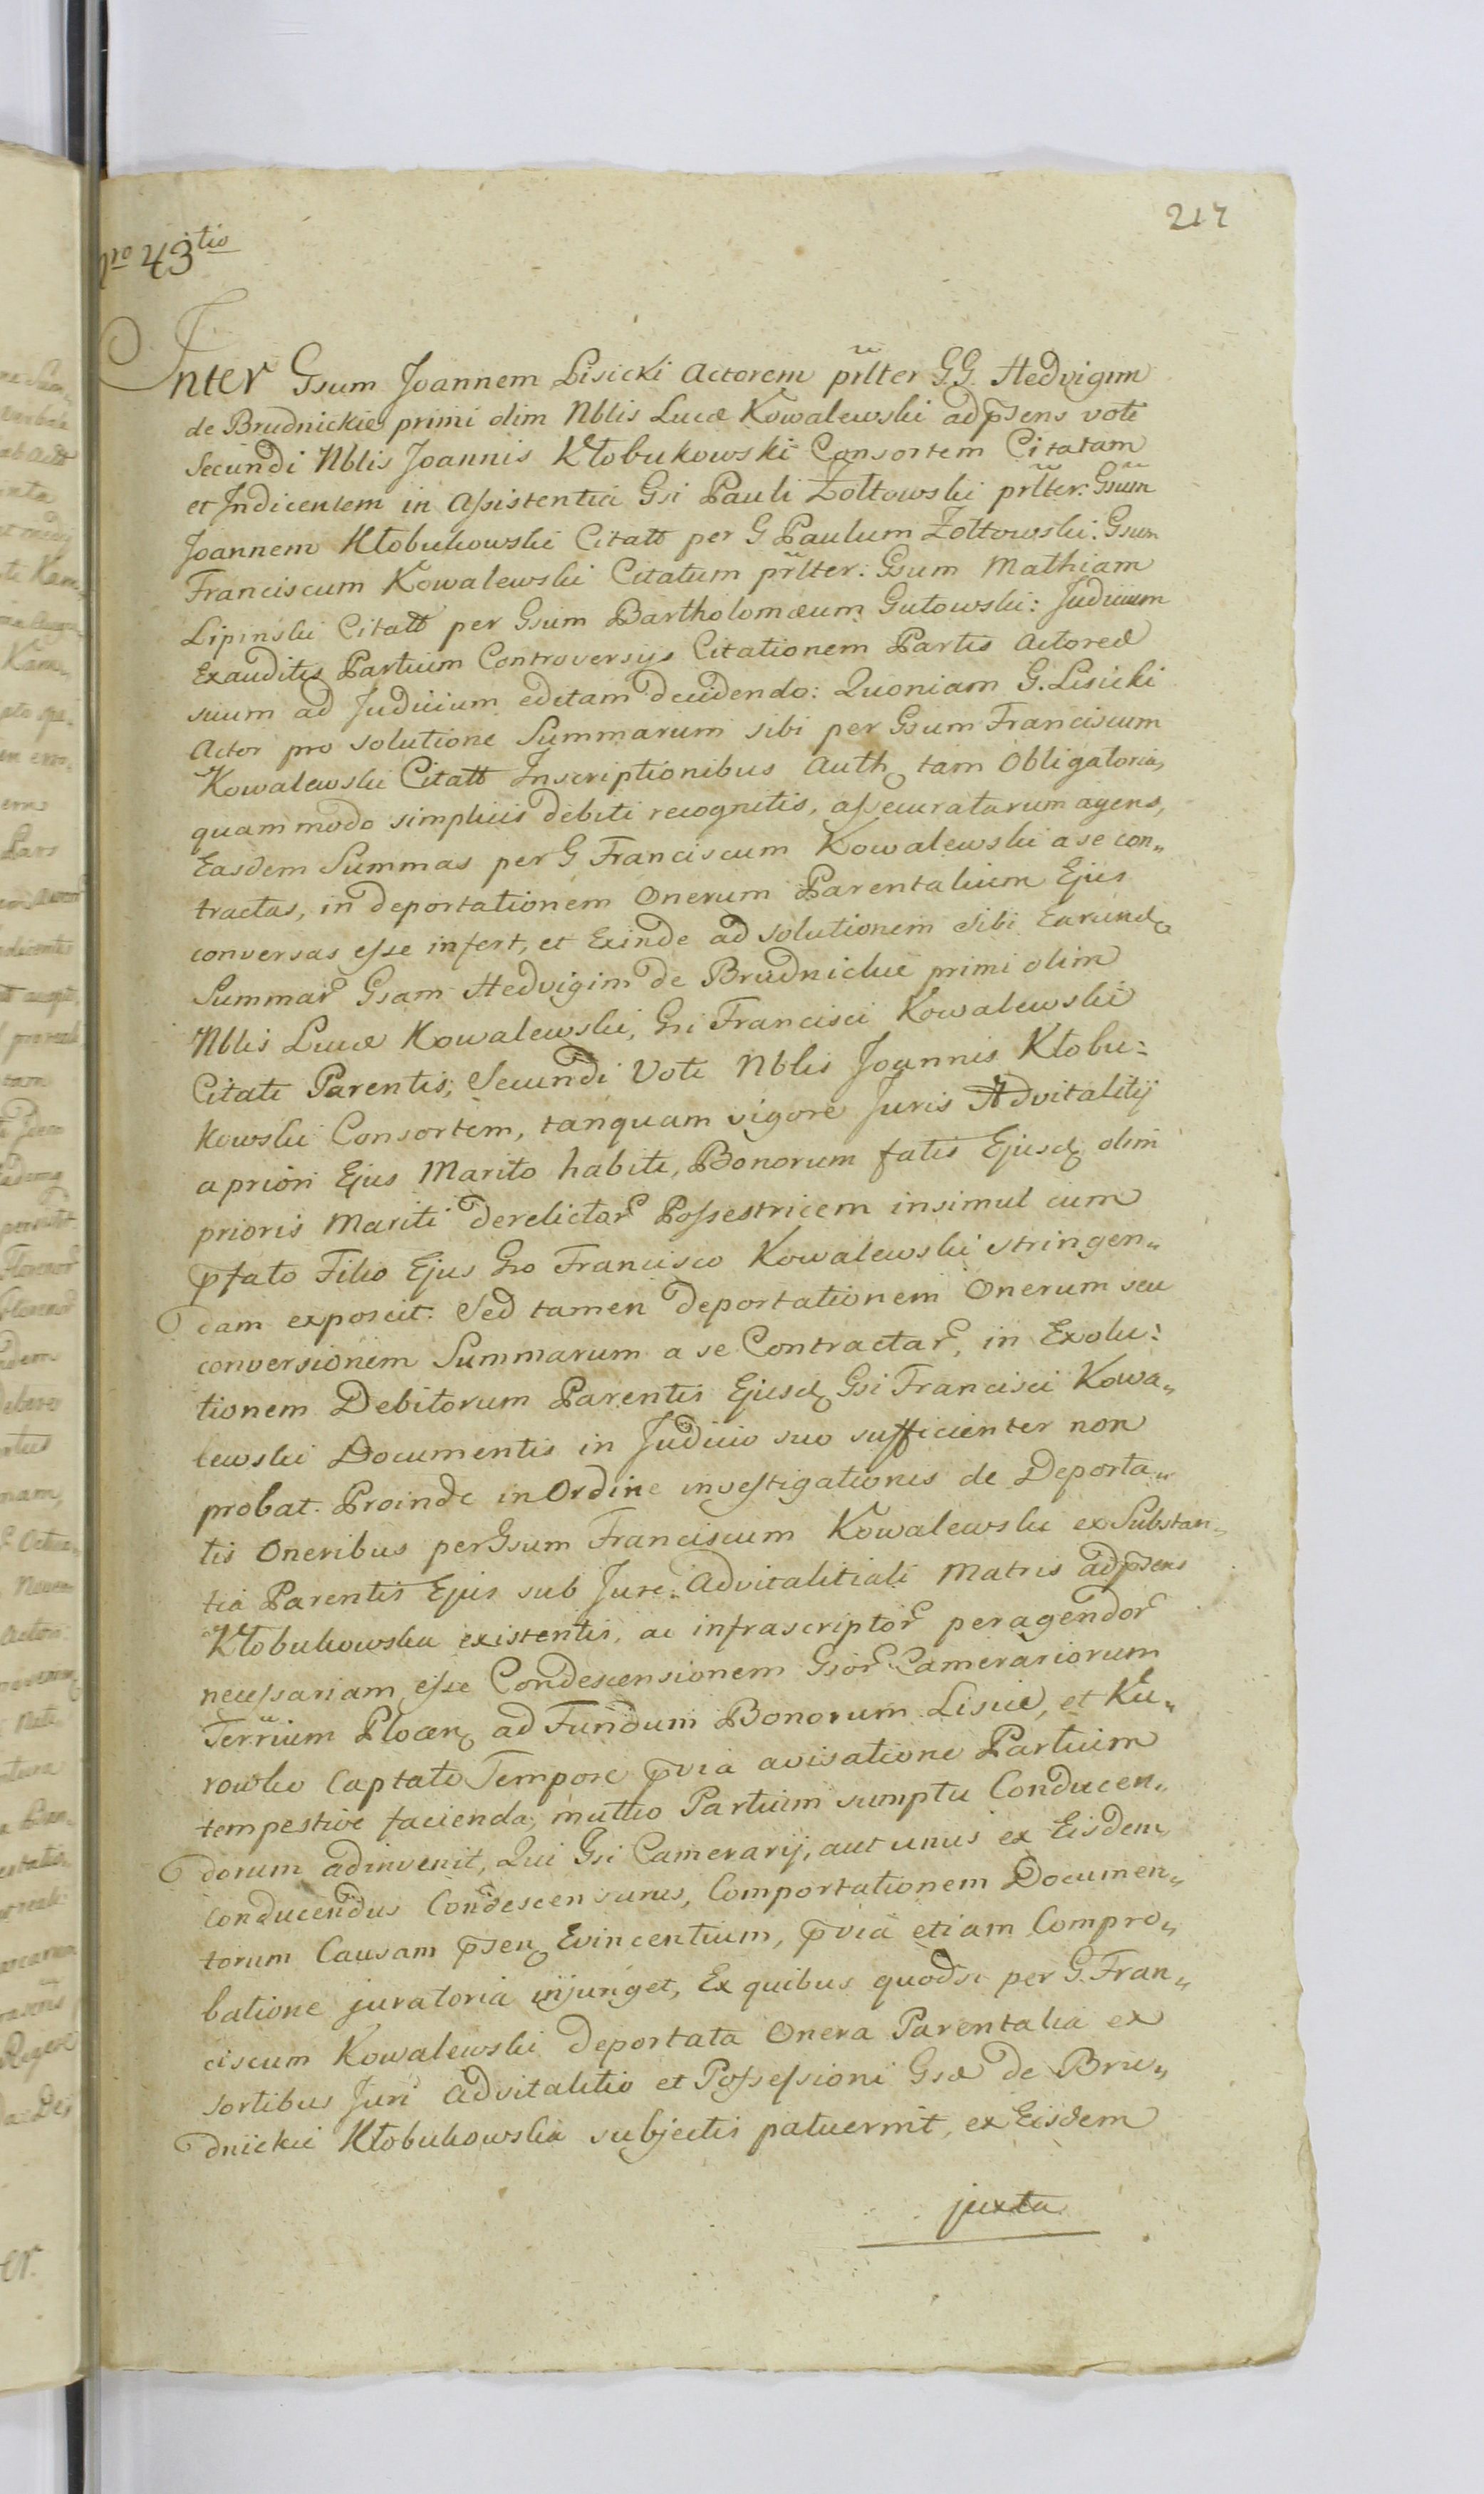 217
nro 43tio
Inter Gsum Joannem Lisicki Actorem prlter GG. Hedvigim
de Brudnickie primi olim Nblis Lucæ Kowalewski adpsens voti
Secundi Nblis Joannis Kłobukowski Consortem Citatam
et Indicentem in Assistentia Gsi Pauli Żołtowski prlter: Gsum
Joannem Kłobukowski Citatt per G Paulum Żołtowski: Gsum
Franciscum Kowalewski Citatum prlter: Gsum Mathiam
Lipinski Citatt per Gsum Bartholomæum Gutowski: Judicium
Exauditis Partium Controversijs Citationem Partis Actoreæ
suum ad Judicium editam decidendo: Quoniam G. Lisicki
Actor pro solutione Summarum sibi per Gsum Franciscum
Kowalewski Citatt Inscriptionibus Auth tam Obligatoria,
quam modo simplicis debiti recognitis, assecuratarum agens,
Easdem Summas per G Franciscum Kowalewski a se con„
tractas, in deportationem Onerum Parentalium Ejus
conversas esse infert, et Exinde ad solutionem sibi Earund
Summar Gsam Hedvigim de Brudnickie primi olim
Nblis Lucæ Kowalewski, Gsi Francisci Kowalewski
Citati Parentis, Secundi Voti Nblis Joannis Kłobu:
kowski Consortem, tanquam vigore Juris Advitalitij
a priori Ejus Marito habiti, Bonorum fatis Ejusd olim
prioris Mariti derelictar Possestricem insimul cum
pfato Filio Ejus Gso Francisco Kowalewski stringen„
dam exposcit. Sed tamen deportationem Onerum seu
conversionem Summarum a se Contractar, in Exolu:
tionem Debitorum Parentis Ejusd Gsi Francisci Kowa„
lewski Documentis in Judicio suo sufficienter non
probat. Proinde in Ordine investigationis de Deporta„
tis Oneribus per Gsum Franciscum Kowalewski ex Substan„
tia Parentis Ejus sub Jure Advitalitiali Matris adpsens
Kłobukowska existentis, ac infrascriptor peragendor
necessariam esse Condescensionem Gsor Camerariorum
Terrium Plocen ad Fundum Bonorum Lisice, et Ku„
rowko Captato Tempore pvia avisatione Partium
tempestive facienda, mutuo Partium sumptu Conducen„
dorum adinvenit, Qui Gsi Camerarij, aut unus ex Eisdem
conducendus Condescensurus, Comportationem Documen„
torum Causam psen Evincentium, pvia etiam Compro„
batione juratoria injunget, Ex quibus quodsi per G. Fran„
ciscum Kowalewski deportata Onera Parentalia ex
sortibus Juri Advitalitio et Possessioni Gsæ de Bru„
dnickie Kłobukowska subjectis patuerint, ex Eisdem
juxta